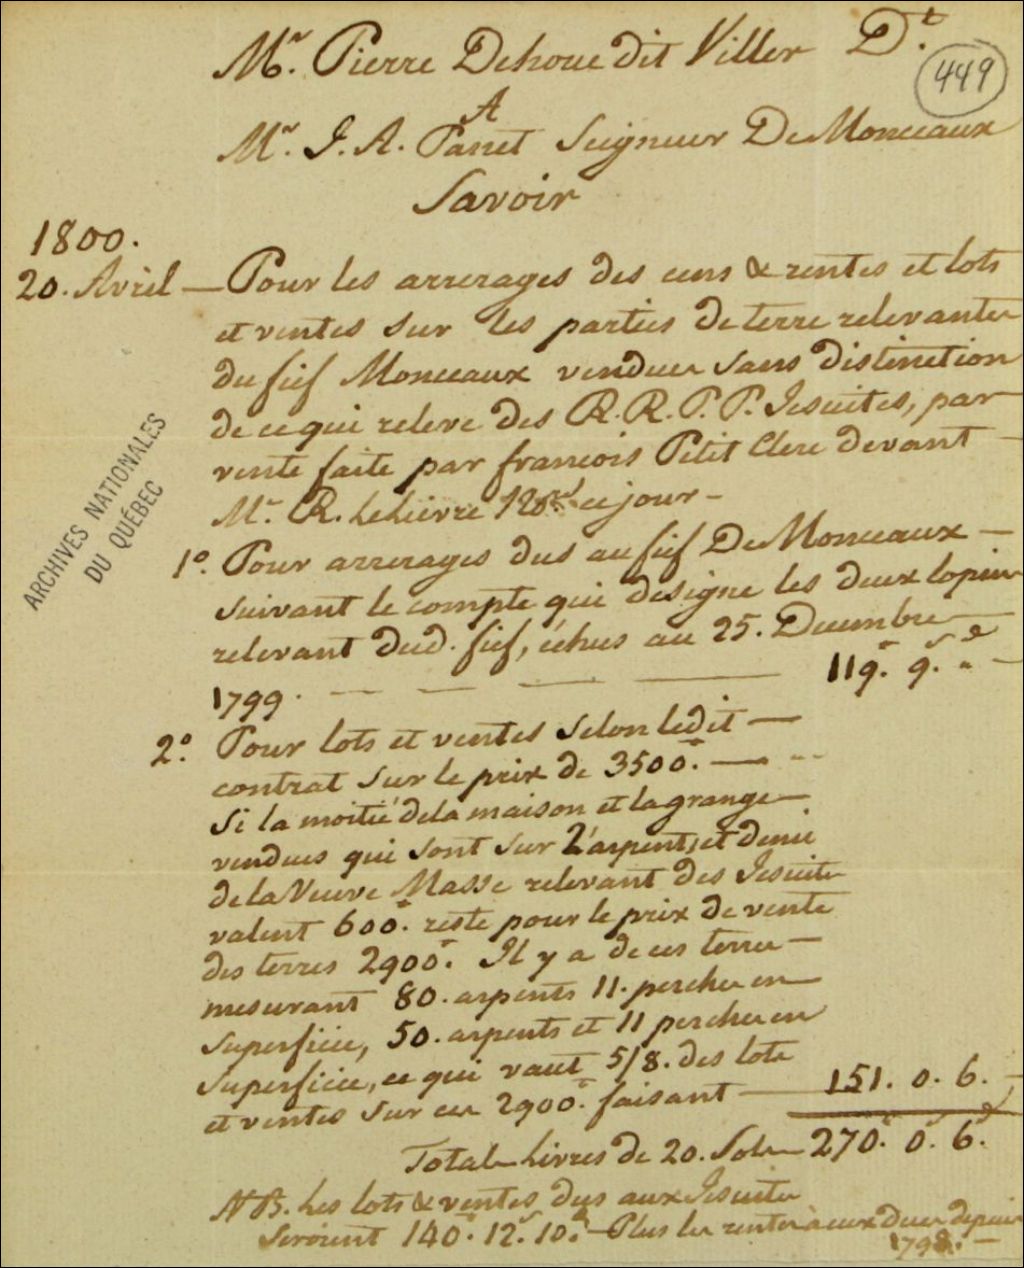 Mr. Pierre Dehoue dit Viller Dt.
449
A
Mr. J. A. Panet Seigneur De Monceaux
Savoir
1800.
20. Avril — Pour les arrerages des cens & rentes et lots
et ventes sur les parties de terre relevantes
du fief Monceaux vendues sans distinction
de ce qui releve des R. R. P. P. Jesuites, par
vente faite par francois Petit Clerc devant —
Mr. R. Lelievre ce jour –
1o. Pour arrerages dus au fief De Monceaux —
suivant le compte qui designe les deux lopins
relevant dud. fief, échus au 25. Decembre
1799. — — — — 119. 9. "
2o. Pour lots et ventes selon ledit —
contrat sur le prix de 3500. —
Si la moitié de la maison et la grange
vendues qui sont sur 2 arpents et demi
de la Veuve Masse relevant des Jesuites
valent 600. reste pour le prix de vente
des terres 2900. Il y a de ces terres —
mesurant 80. arpents 11. perches en
superficie, 50. arpents et 11 perches en
superficie, ce qui vaut 5/8. des lots
et ventes sur ces 2900. faisant — 151. 0. 6.
Total Livres de 20. Sols 270. 0. 6.
NB. Les lots & ventes dus aux Jesuites
seroient 140. 12. 10. — Plus les rentes à eux dues depuis
ARCHIVES NATIONALES
DU QUÉBEC